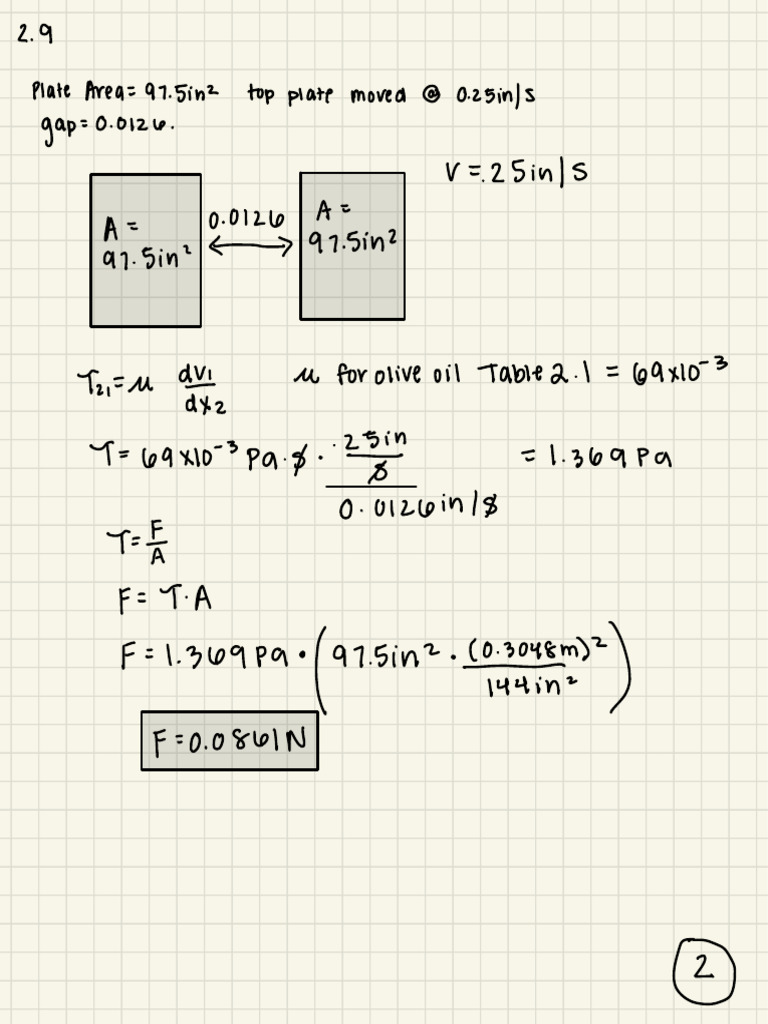 2.9
Plate Area= 97.5in² top plate moved @ 0.25in/s
gap=0.0126.
V=.25in/s
A=
97.5in²
0.0126
A=
97.5in²
τ₂₁=μ dv₁/dx₂
μ for olive oil Table 2.1 = 69x10⁻³
τ= 69x10⁻³ Pa·s · .25in/s / 0.0126in/s = 1.369 Pa
τ=F/A
F= τ·A
F=1.369 Pa·(97.5in² · (0.3048m)²/144in²)
F=0.0861N
2